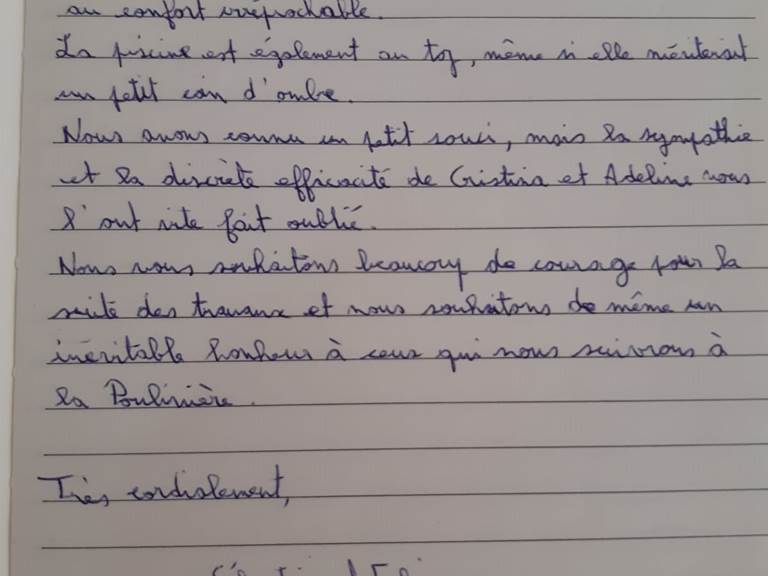 au confort irréprochable.
La piscine est également au top, même si elle mériterait
un petit coin d'ombre.
Nous avons connu un petit souci, mais la sympathie
et la discrète efficacité de Cristina et Adeline nous
l'ont vite fait oublié.
Nous vous souhaitons beaucoup de courage pour la
suite des travaux et nous souhaitons de même un
inévitable bonheur à ceux qui nous suivrons à
la Poulinière.
Très cordialement,